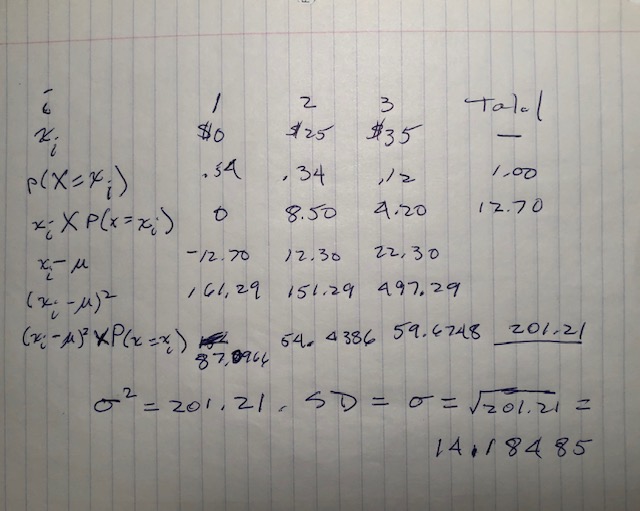 i 1 2 3 Total
xi $0 $25 $35 —
P(X=xi) .54 .34 .12 1.00
xi X P(x=xi) 0 8.50 4.20 12.70
xi-μ -12.70 12.30 22.30
(xi-μ)² 161.29 151.29 497.29
(xi-μ)² X P(x=xi) 87.0966 54.4386 59.6748 201.21
σ² = 201.21. SD = σ = √201.21 =
14.18485